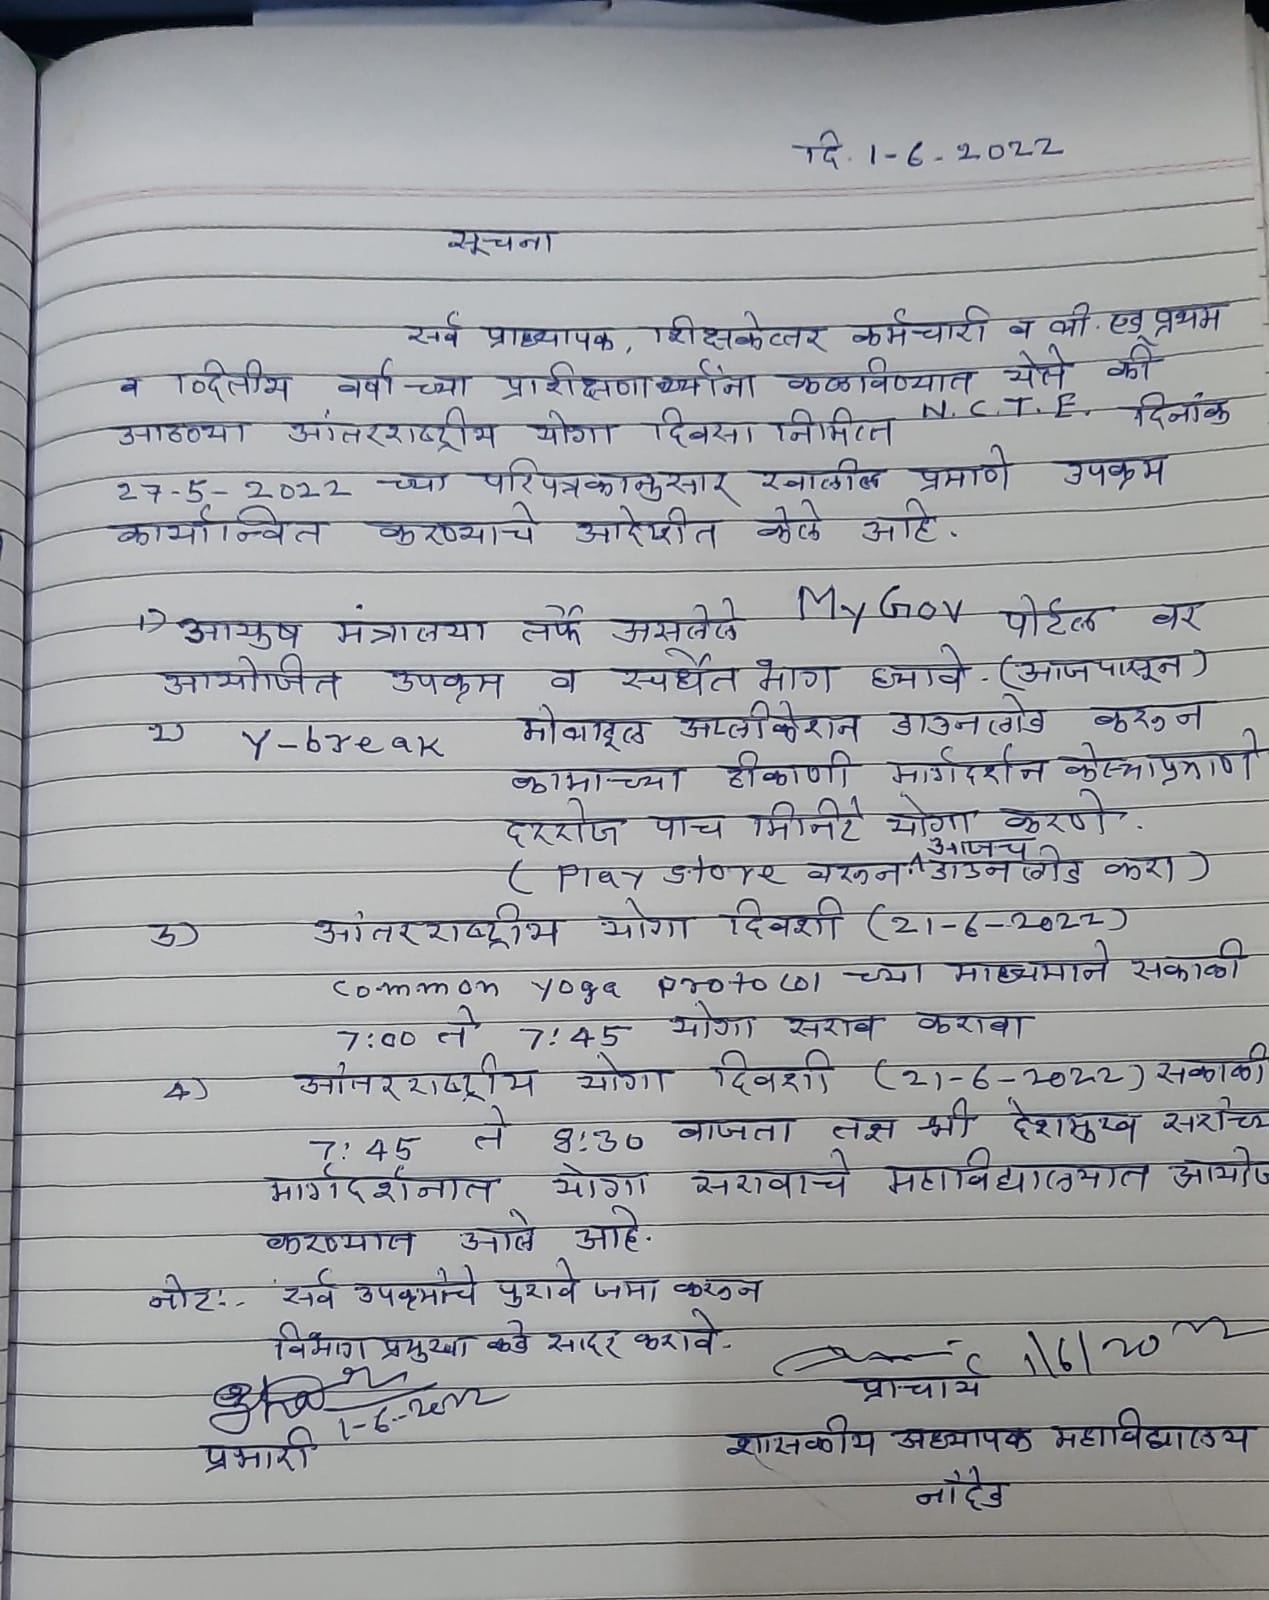 दि. 1-6-2022
सूचना
सर्व प्राध्यापक, शिक्षकेत्तर कर्मचारी व बी. एड् प्रथम
व द्वितीय वर्षाच्या प्रशिक्षणार्थ्यांना कळविण्यात येते की
आठव्या आंतरराष्ट्रीय योगा दिवसा निमित्त N.C.T.E. दिनांक
27-5-2022 च्या परिपत्रकानुसार खालील प्रमाणे उपक्रम
कार्यान्वित करण्याचे आदेशीत केले आहे.
1) आयुष मंत्रालया तर्फे असलेले MyGov पोर्टल वर
आयोजित उपक्रम व स्पर्धेत भाग घ्यावे. (आजपासून)
2) Y-break मोबाइल अप्लीकेशन डाउनलोड करून
कामाच्या ठीकाणी मार्गदर्शन केल्याप्रमाणे
दररोज पाच मिनिटे योगा करणे.
(Play store वरून आजच डाउनलोड करा)
3) आंतरराष्ट्रीय योगा दिवशी (21-6-2022)
common yoga protocol च्या माध्यमाने सकाळी
7:00 ते 7:45 योगा सराव करावा
4) आंतरराष्ट्रीय योगा दिवशी (21-6-2022) सकाळी
7:45 ते 8:30 वाजता तज्ञ श्री देशमुख सरांच्य
मार्गदर्शनात योगा सरावाचे महाविद्यालयात आयोज
करण्यात आले आहे.
नोट:- सर्व उपक्रमांचे पुरावे जमा करून
विभाग प्रमुखा कडे सादर करावे.
1/6/2022
प्राचार्य
1-6-2022
प्रभारी
शासकीय अध्यापक महाविद्यालय
नांदेड